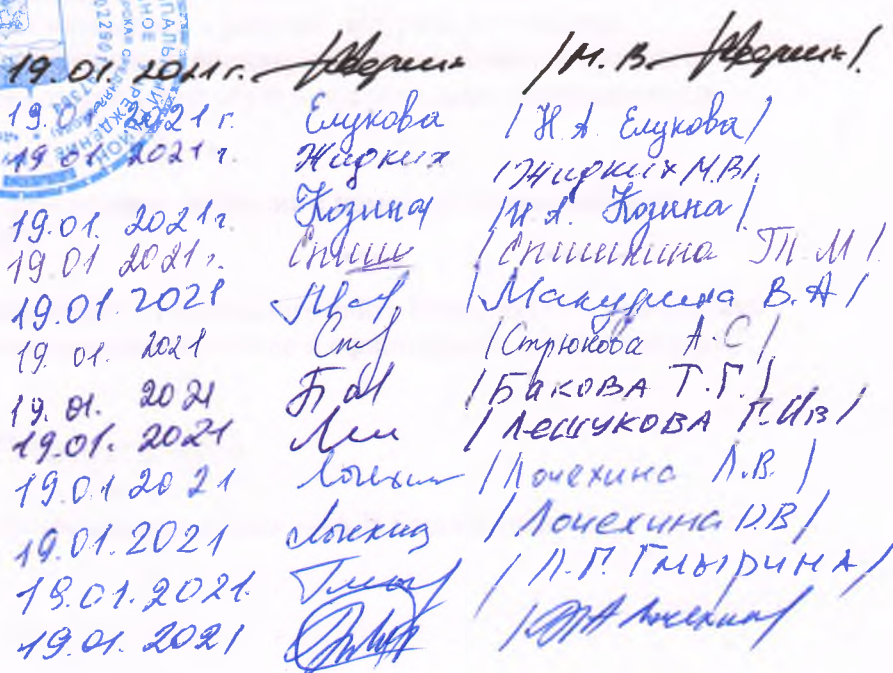 19.01.2021г. /М.В.
19.01.2021г. Елукова /Н.А. Елукова/
19.01.2021г. Жидких /Жидких М.В/.
19.01.2021г Козина /Н.А. Козина/
19.01.2021г. Спиш /Спишихина Т.М/.
19.01.2021 /Макурина В.А/
19.01.2021 Стр /Стрюкова А.С/
19.01.2021 Бак /БАКОВА Т.Г./
19.01.2021 Леш /ЛЕШУКОВА Г.ИВ/
19.01.2021 Лочехин /Лочехина Л.В./
19.01.2021 Лочехин /Лочехина О.В/
19.01.2021. /Л.Г. ГМЫРИНА/
19.01.2021